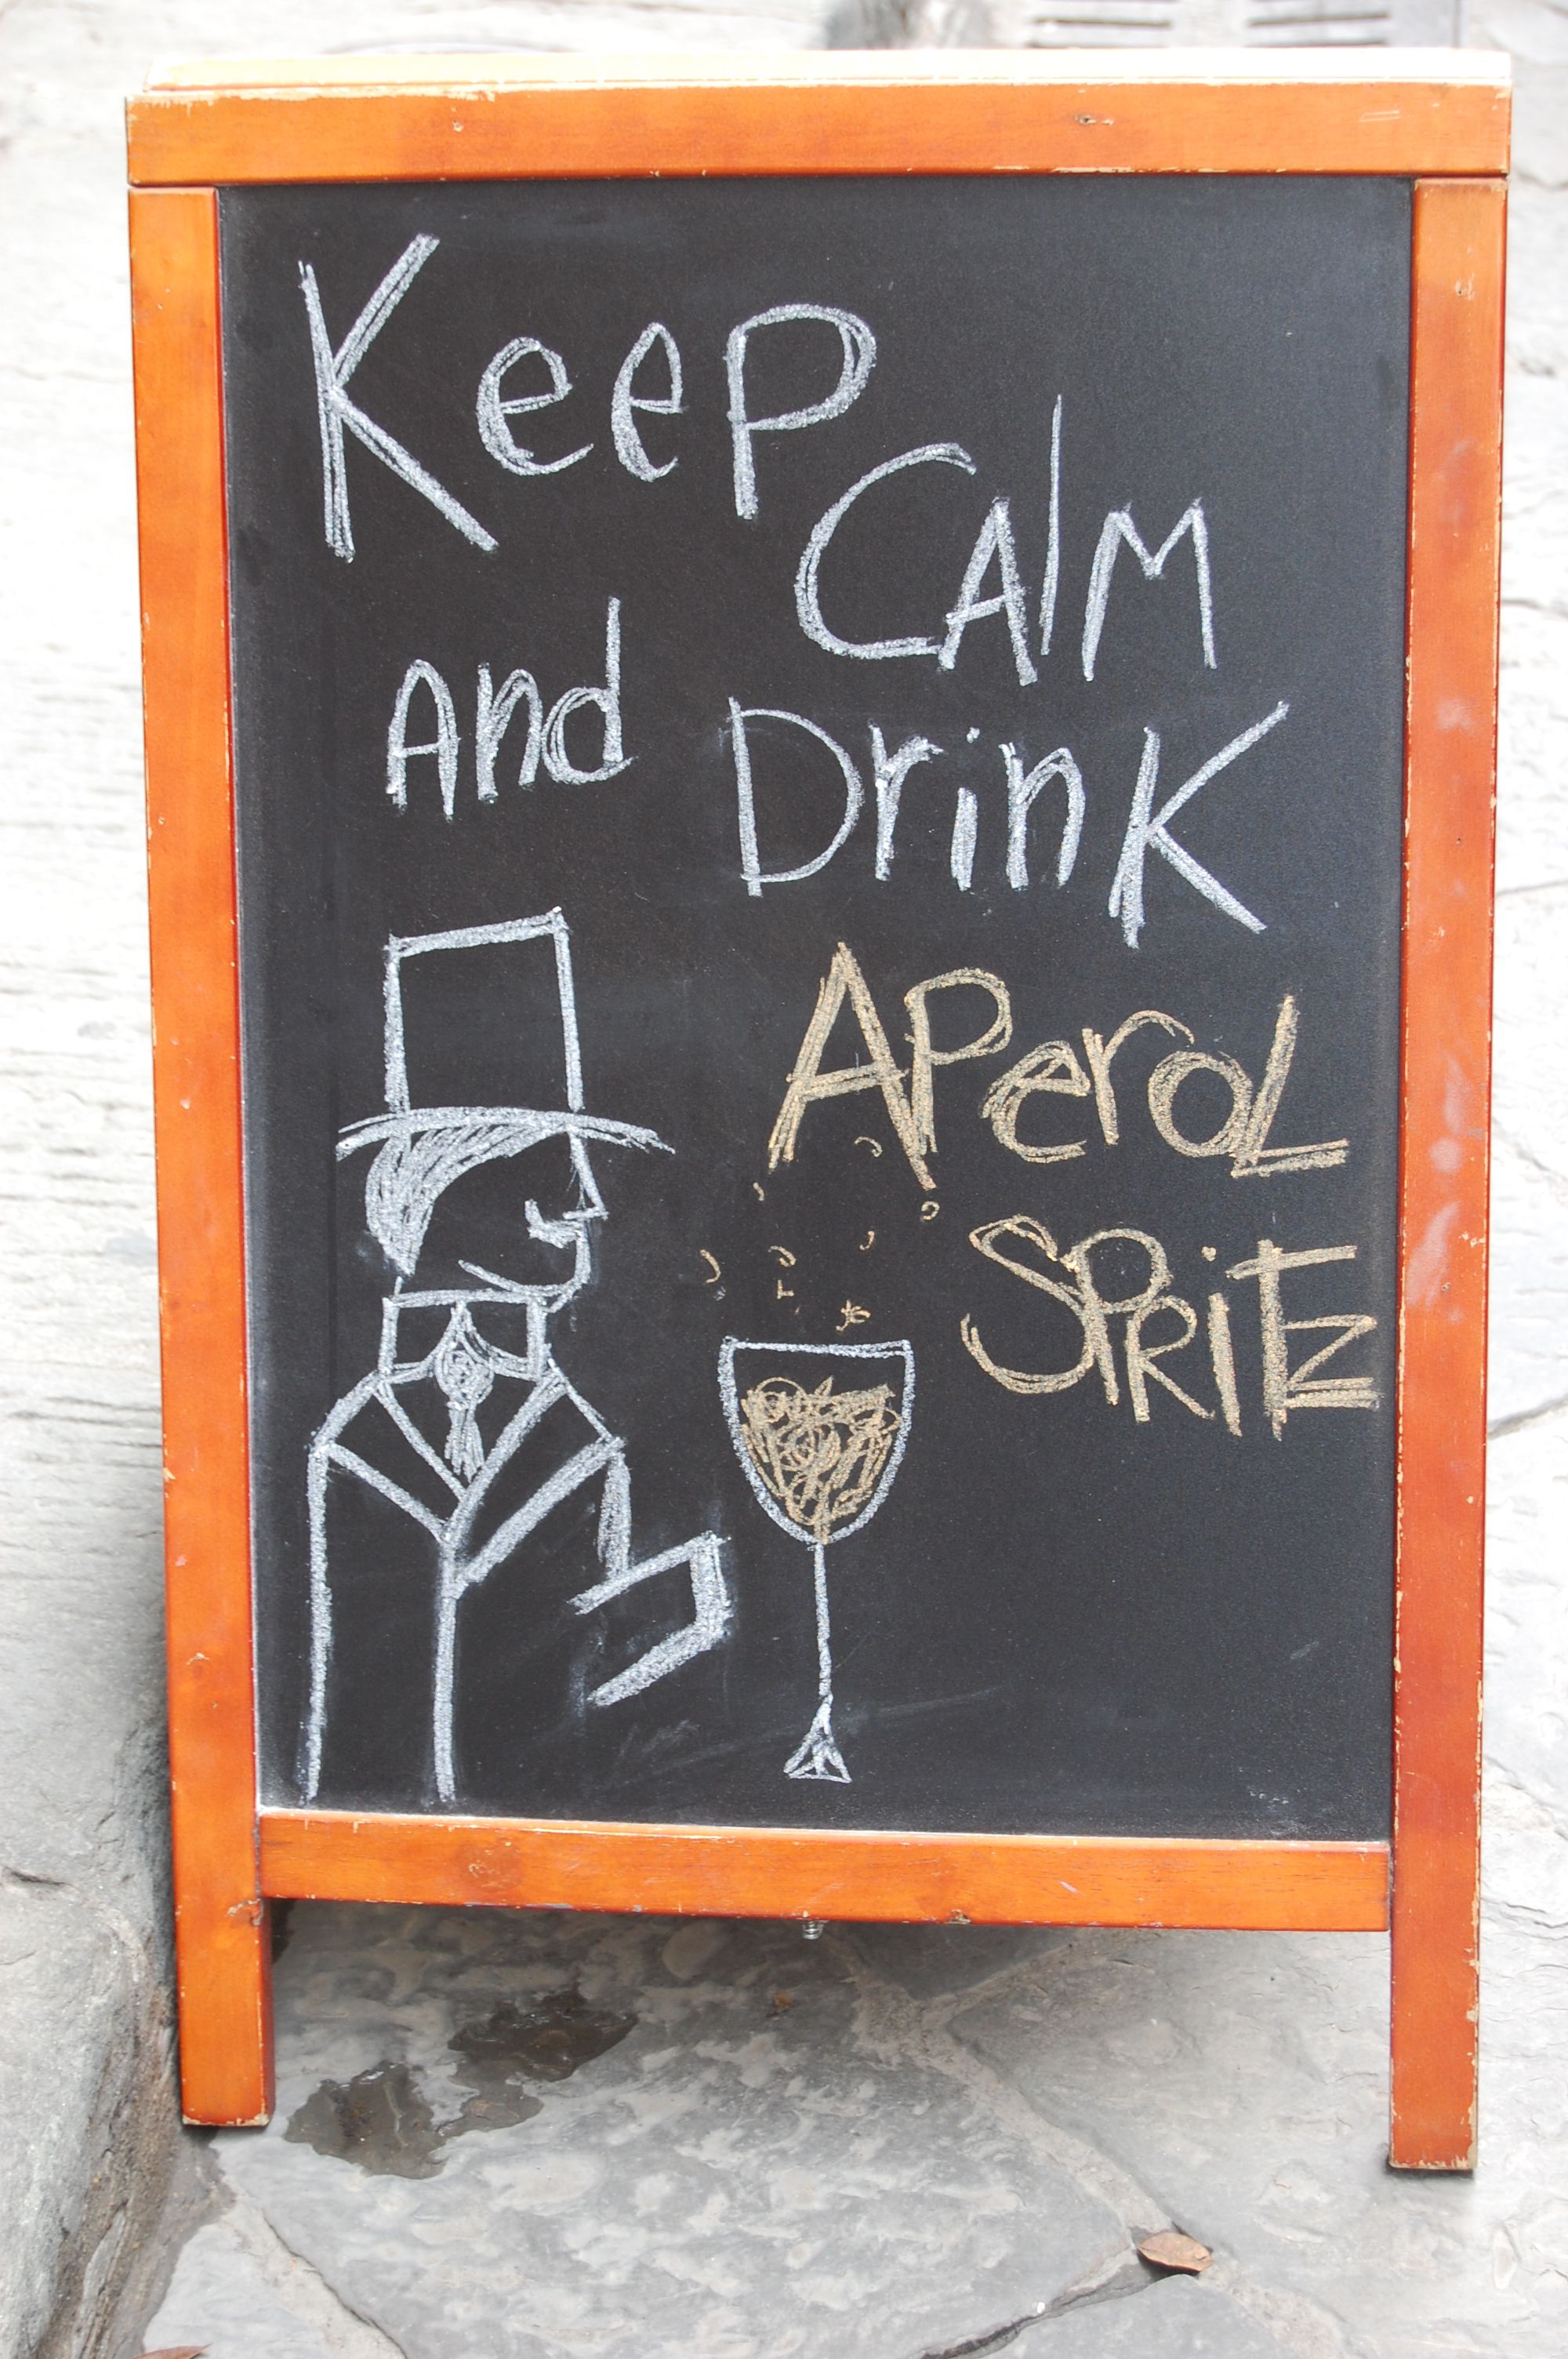 Keep
CAlM
And DrinK
APeroL
SPRiTz